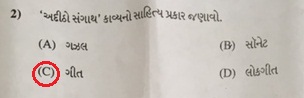 2) 'અદીઠો સંગાથ' કાવ્યનો સાહિત્ય પ્રકાર જણાવો.
(A) ગઝલ (B) સૉનેટ
(C) ગીત (D) લોકગીત